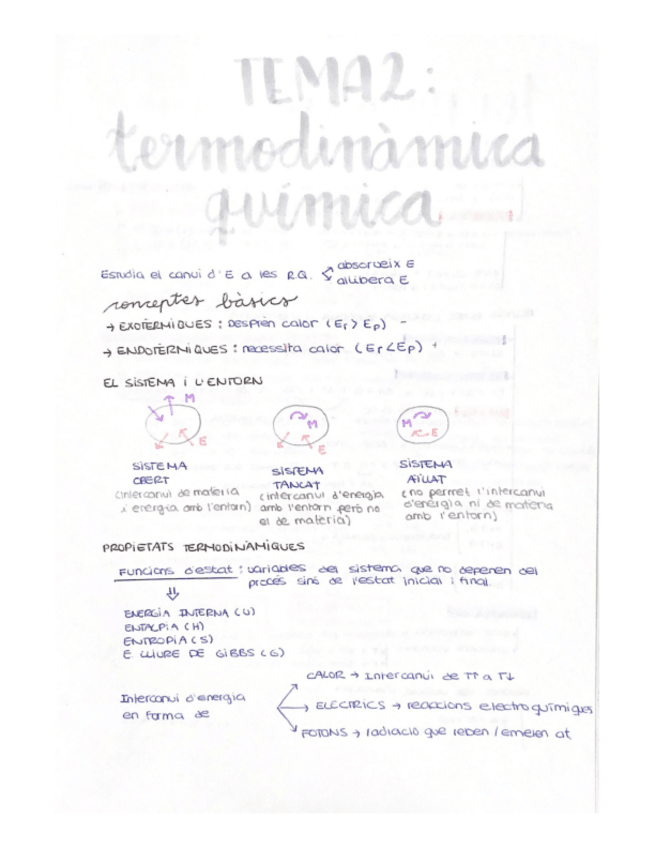 TEMA 2:
termodinàmica
química
Estudia el canvi d'E a les R.Q. absorveix E
allibera E
conceptes bàsics
→ EXOTÈRMIQUES : Desprèn calor (Er > Ep) -
→ ENDOTÈRMIQUES : necessita calor (Er < Ep) +
EL SISTEMA i L'ENTORN
M E M E M E
SISTEMA OBERT
(intercanvi de matèria i energia amb l'entorn)
SISTEMA TANCAT
(intercanvi d'energia amb l'entorn però no el de matèria)
SISTEMA AÏLLAT
(no permet l'intercanvi d'energia ni de matèria amb l'entorn)
PROPIETATS TERMODINÀMIQUES
Funcions d'estat : variables del sistema que no depenen del
procés sinó de l'estat inicial i final.
⇓
ENERGÍA INTERNA (U)
ENTALPIA (H)
ENTROPIA (S)
E LLIURE DE GIBBS (G)
CALOR → Intercanvi de T↑ a T↓
Intercanvi d'energia
en forma de
ELÈCTRICS → reaccions electroquímiques
FOTONS → radiació que reben / emeten at